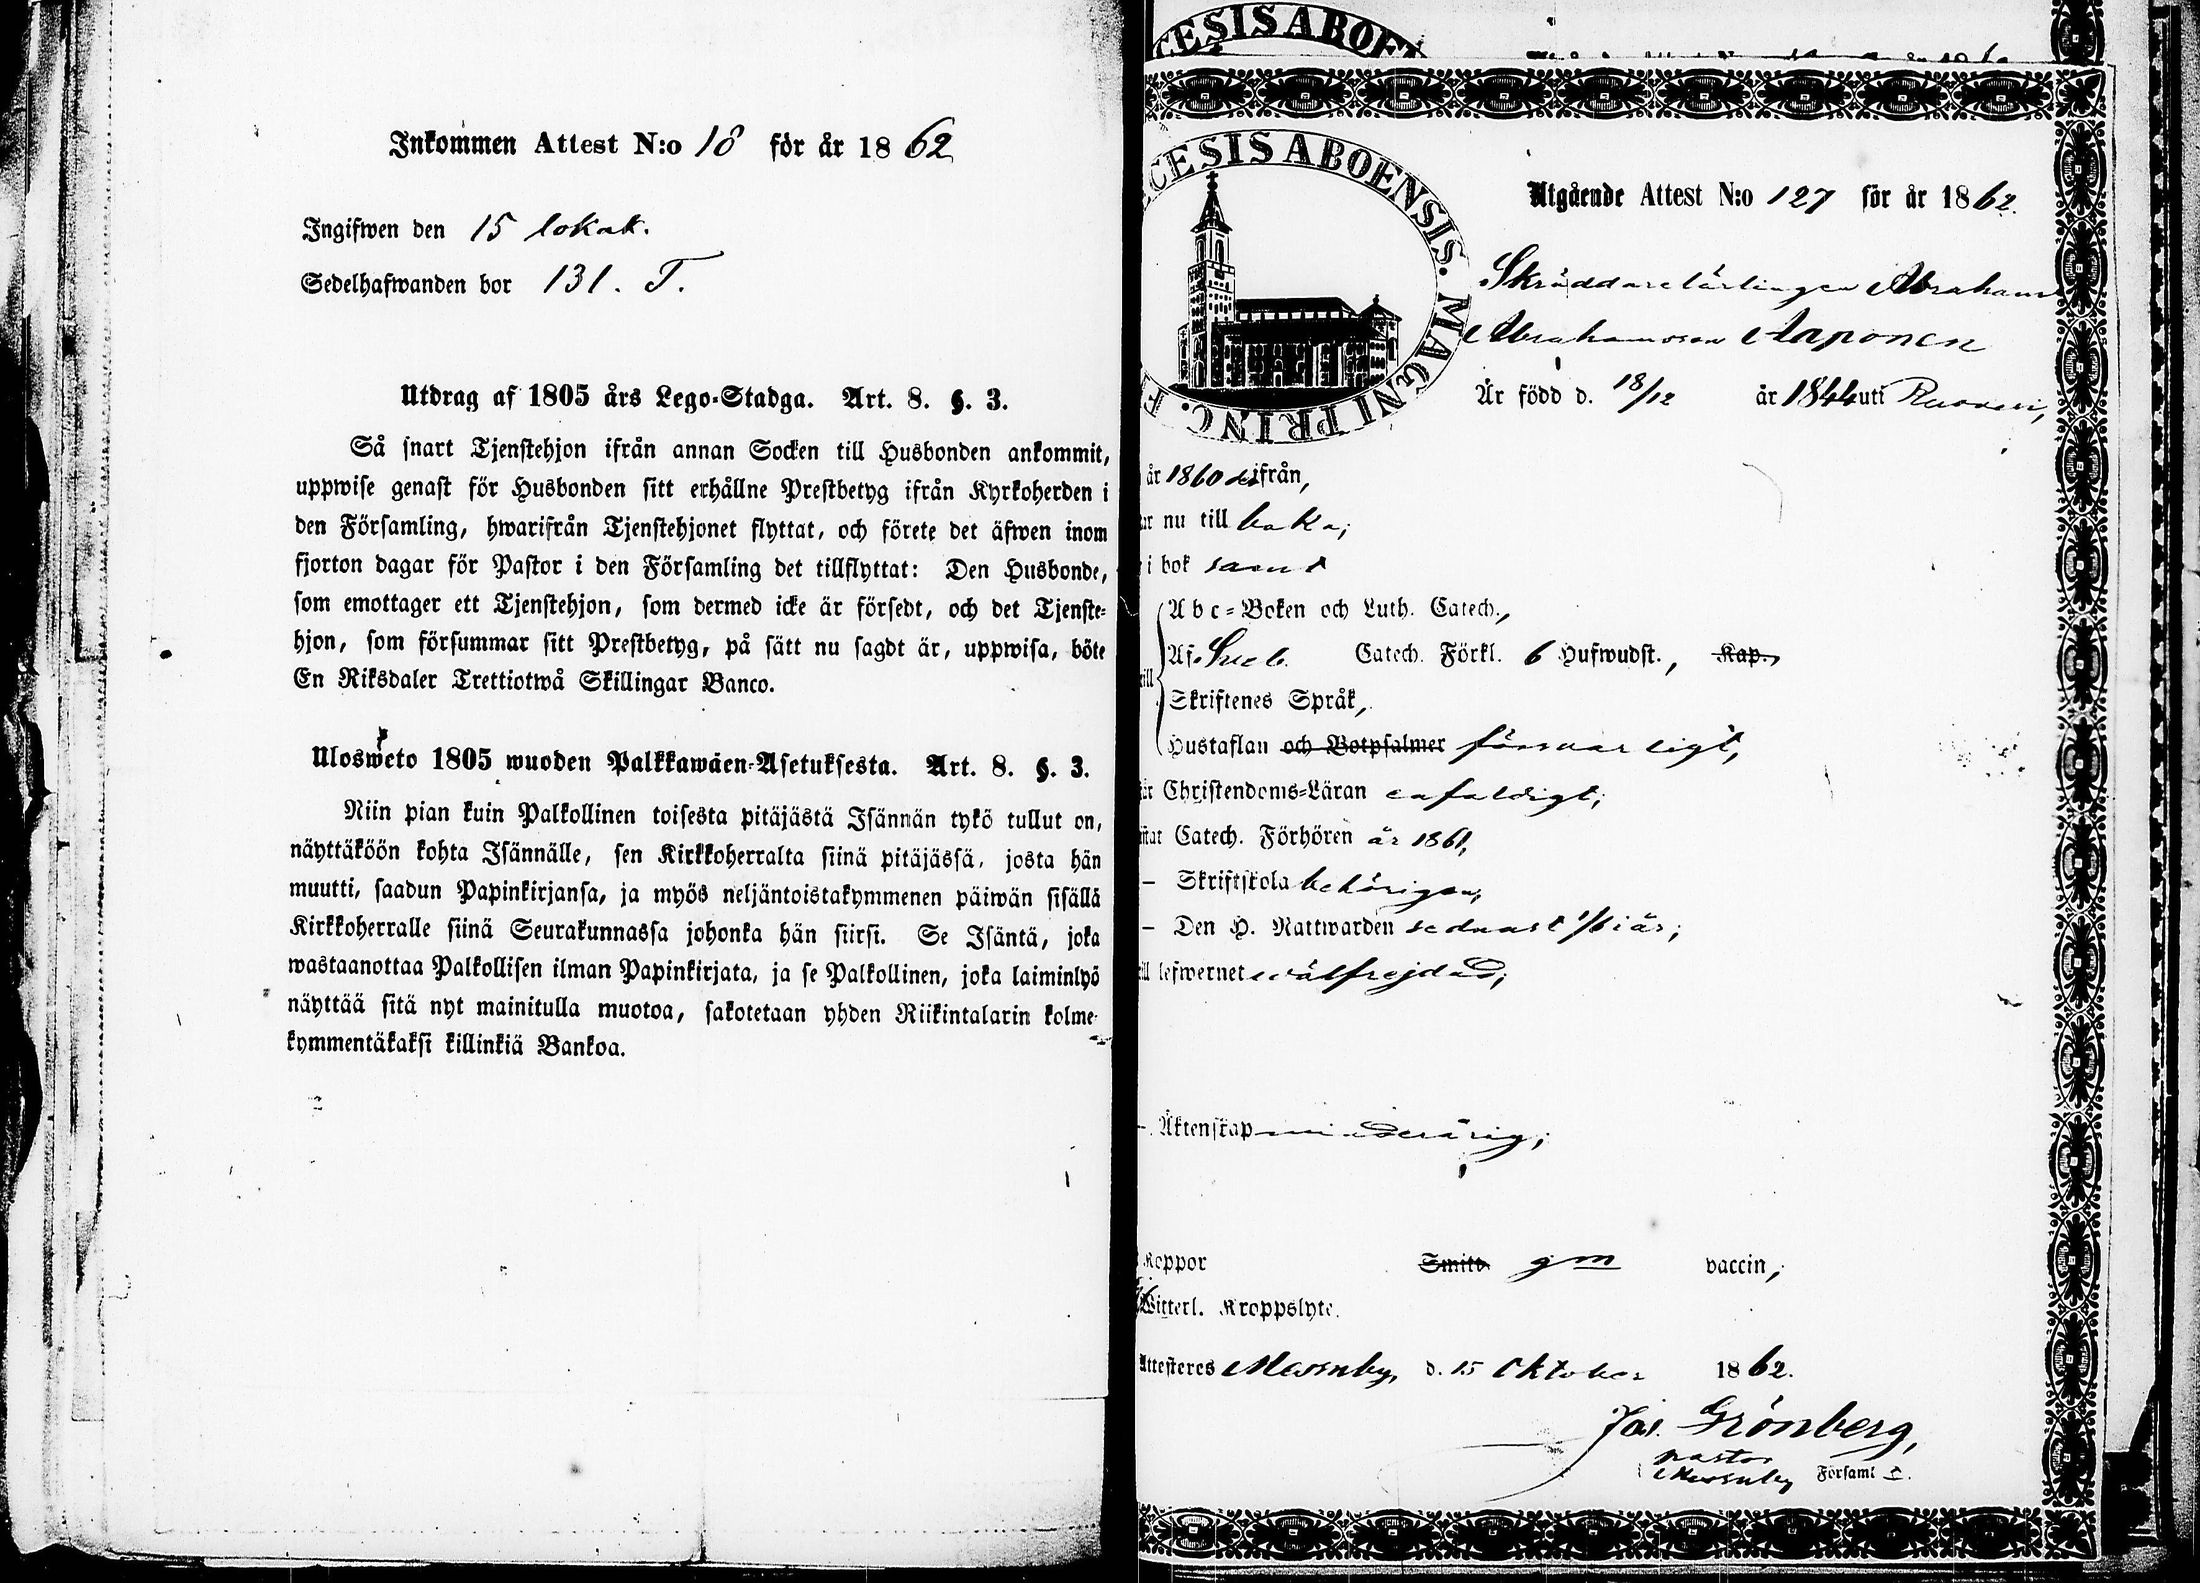 Inkommen Attest N:o 18 för år 1862
Ingifwen den 15 lokak.
Sedelhafwanden bor 131. T.
Utdrag af 1805 års Lego-Stadga. Art. 8. §. 3.
Så snart Tjenstehjon ifrån annan Socken till Husbonden ankommit,
uppwise genast för Husbonden sitt erhållne Prestbetyg ifrån Kyrkoherden i
den Församling, hwarifrån Tjenstehjonet flyttat, och förete det äfwen inom
fjorton dagar för Pastor i den Församling det tillflyttat: Den Husbonde,
som emottager ett Tjenstehjon, som dermed icke är försedt, och det Tjenste-
hjon, som försummar sitt Prestbetyg, på sätt nu sagdt är, uppwisa, böte
En Riksdaler Trettiotwå Skillingar Banco.
Ulosweto 1805 wuoden Palkkawäen-Asetuksesta. Art. 8. §. 3.
Niin pian kuin Palkollinen toisesta pitäjästä Isännän tykö tullut on,
näyttäköön kohta Isännälle, sen Kirkkoherralta siinä pitäjässä, josta hän
muutti, saadun Papinkirjansa, ja myös neljäntoistakymmenen päiwän sisällä
Kirkkoherralle siinä Seurakunnassa johonka hän siirsi. Se Isäntä, joka
wastaanottaa Palkollisen ilman Papinkirjata, ja se Palkollinen, joka laiminlyö
näyttää sitä nyt mainitulla muotoa, sakotetaan yhden Riikintalarin kolme-
kymmentäkaksi killinkiä Bankoa.
CESIS ABOENSIS. MAGNI PRINC. F
Utgående Attest N:o 127 för år 1862.
Skräddarelärlingen Abraham
Abrahamsson Aaponen
Är född d. 18/12 år 1844 uti
år 1860 ifrån,
nu till baka;
i bok samt
Abc-Boken och Luth. Catech.,
Af Sveb. Catech. Förkl. 6 Hufwudst., Kap.,
Skriftenes Språk,
Hustaflan och Botpsalmer försvarligt,
Christendoms-Läran enfaldigt;
Catech. Förhören år 1861,
– Skriftskola behörigen,
– Den H. Nattwarden sednast 1/6 i år;
lefwernet wälfrejdad;
– Äktenskap minderårig;
Koppor Smitt. gm vaccin,
Witterl. Kroppslyte.
Attesteres Messuby, d. 15 Oktober 1862.
Jos. Grönberg,
pastor
i Messuby Församl